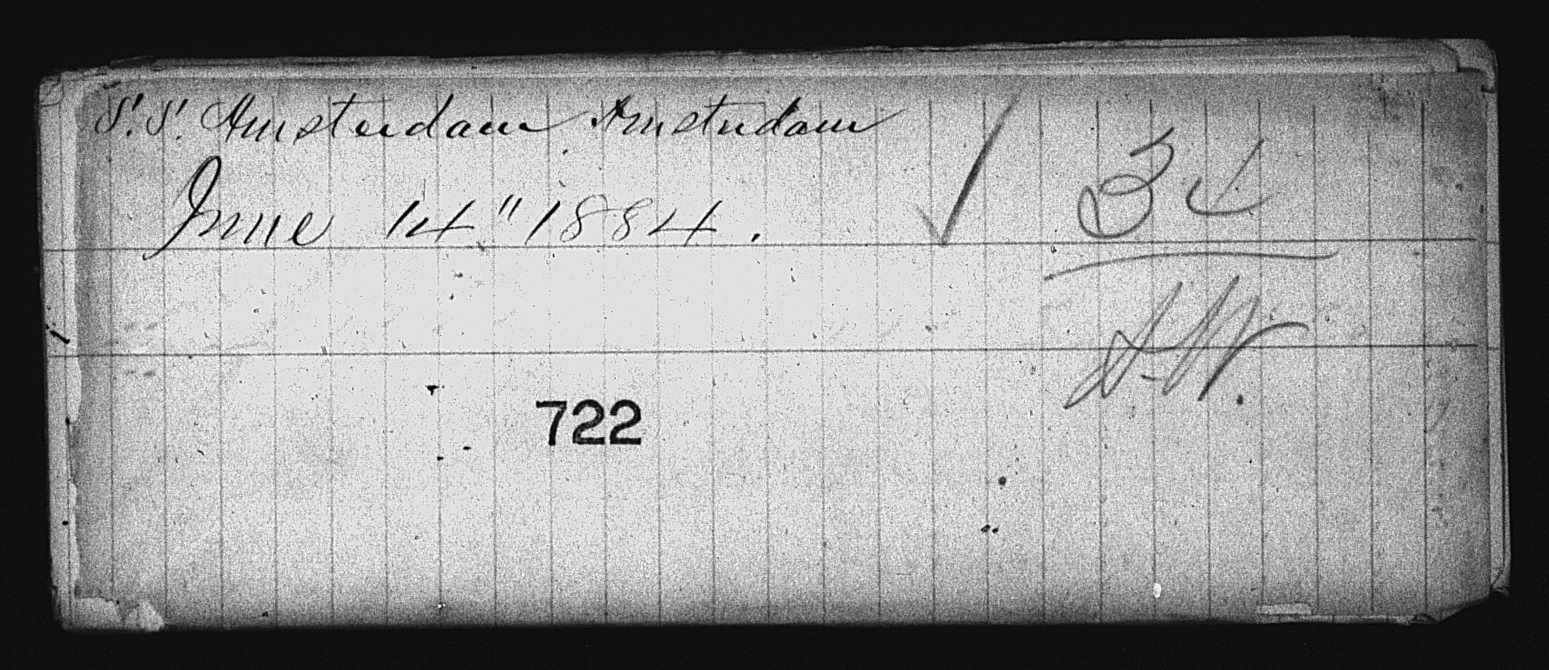 S.S. Amsterdam Amsterdam
June 14" 1884.
34
722